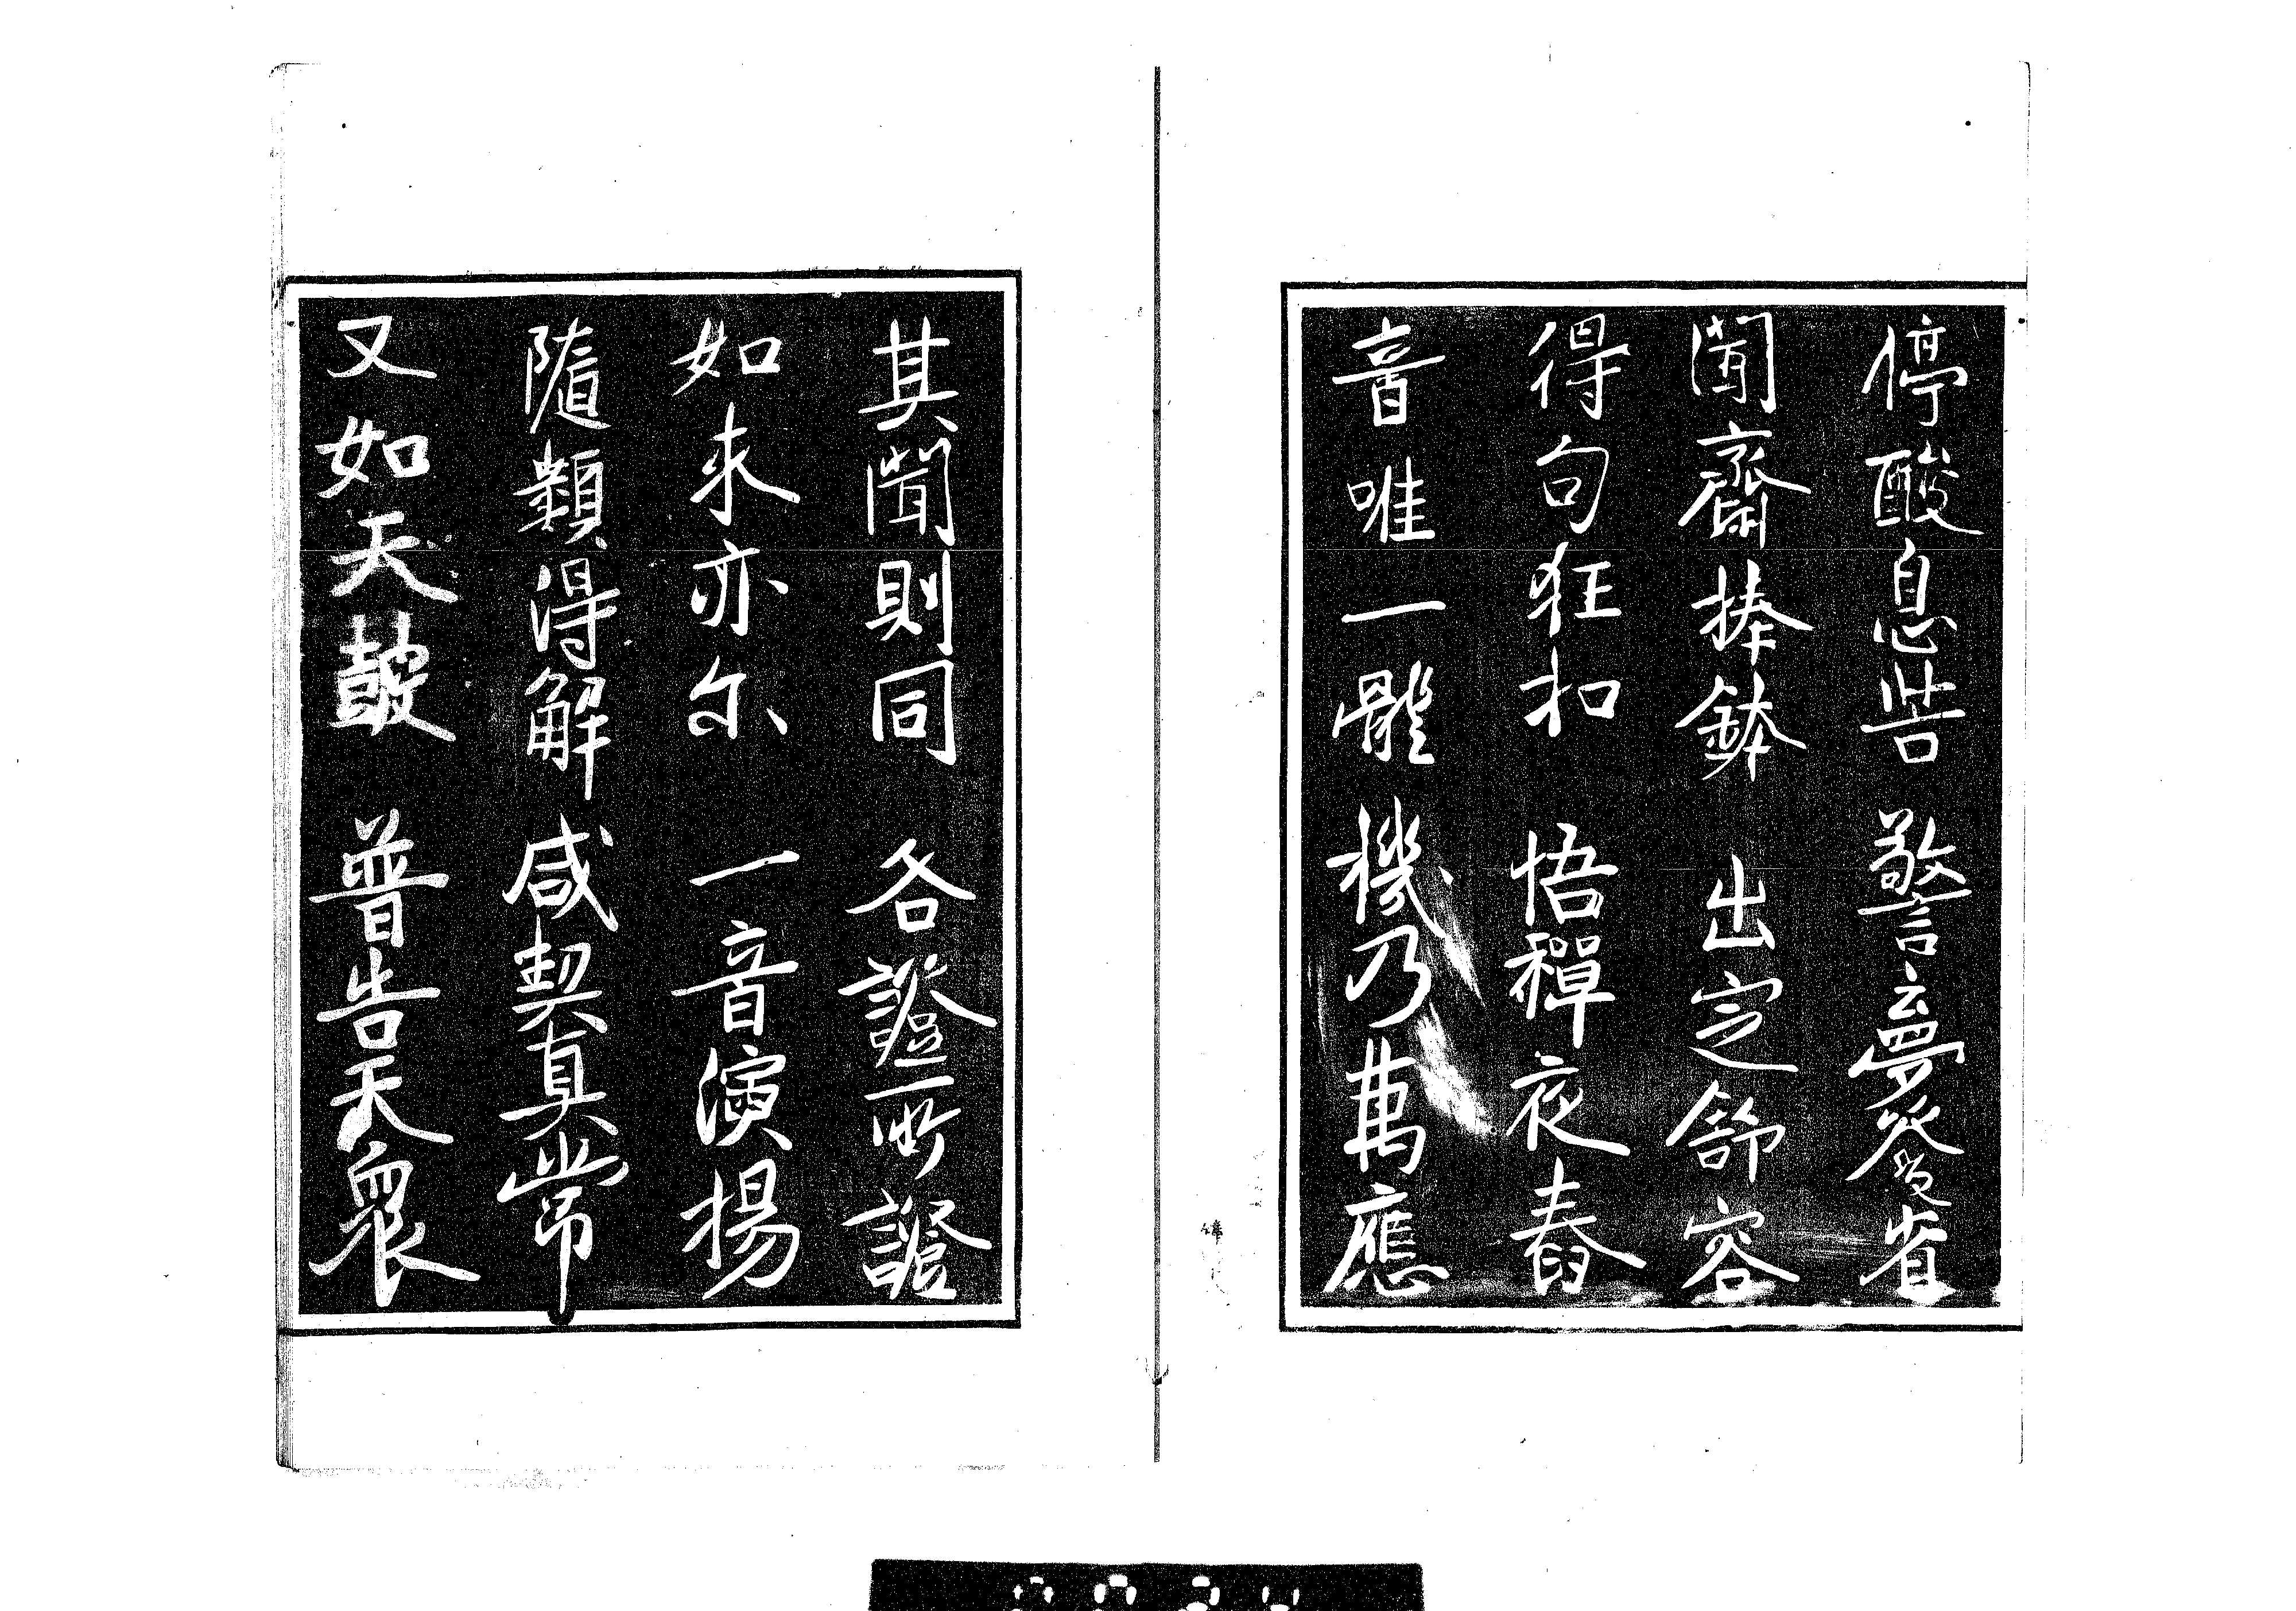 停酸息告 警夢發省
聞齋捧鉢 出定舒容
得句狂扣 悟禪夜舂
音唯一體 機乃萬應
其聞則同 各證所證
如来亦尔 一音演揚
隨類得解 咸契真常
又如天鼓 普告天衆